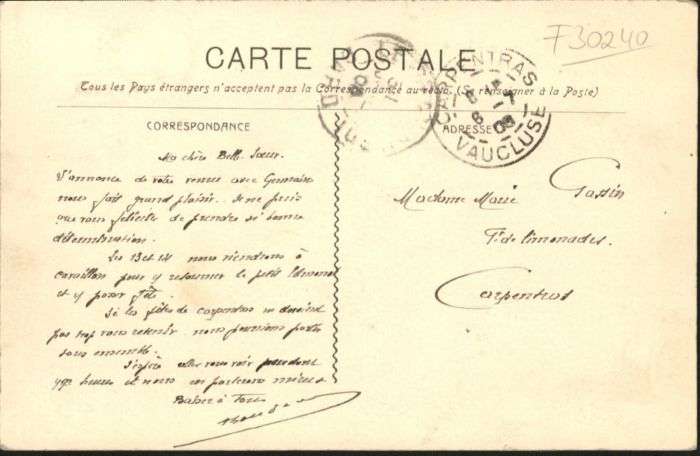 F30240
CARTE POSTALE
Tous les Pays étrangers n'acceptent pas la Correspondance au recto. (Se renseigner à la Poste)
CARPENTRAS
VAUCLUSE
CORRESPONDANCE
ADRESSE
Ma chère Belle Sœur.
L'annonce de votre venue avec Germaine
nous fait grand plaisir. Je ne puis
que vous féliciter de prendre si bonne
détermination.
Les 13 et 14 nous viendrons à
Cavaillon pour y retourner le petit Edmond
et y passer fête.
Si les fêtes de Carpentras ne doivent
pas trop vous retenir nous pourrions partir
tous ensemble.
J'espère aller vous voir pendant
heures et nous en parlerons mieux
Baiser à Tous
Madame Marie Gassin
Ft de limonades.
Carpentras